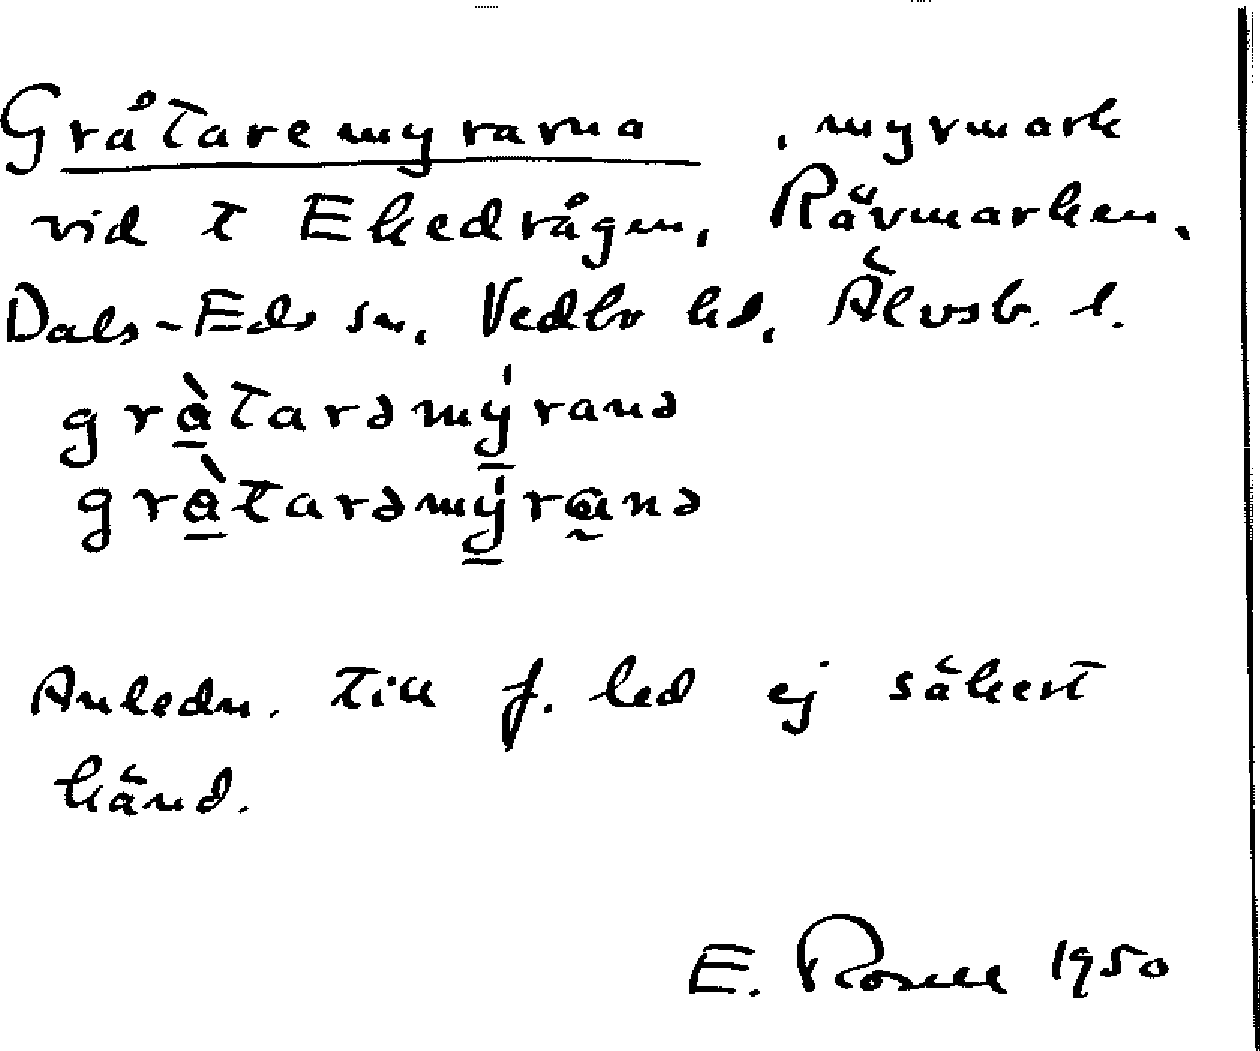 Gråtaremyrarna, myrmark
vid t Ekedrågen, Rävmarken,
Dals-Eds sn, Vedbo hd, Älvsb. l.
grå̀tarəmý̱ranə
grå̀tarəmý̱ra̰nə
Anledn. till f. led ej säkert
känd.
E. Rosell 1950